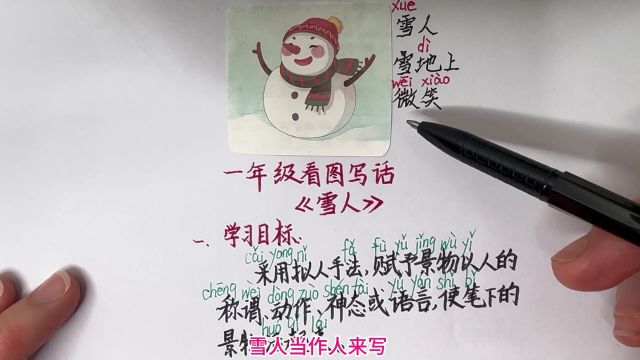 xuě
雪人
dì
雪地上
wēi xiào
微笑
一年级看图写话
《雪人》
一、学习目标:
cǎi yòng nǐ fǎ fù yǔ jǐng wù yǐ
采用拟人手法,赋予景物以人的
chēng wèi dòng zuò shén tài yǔ yán shǐ bǐ
称谓、动作、神态或语言,使笔下的
huó qǐ lái
景物
雪人当作人来写